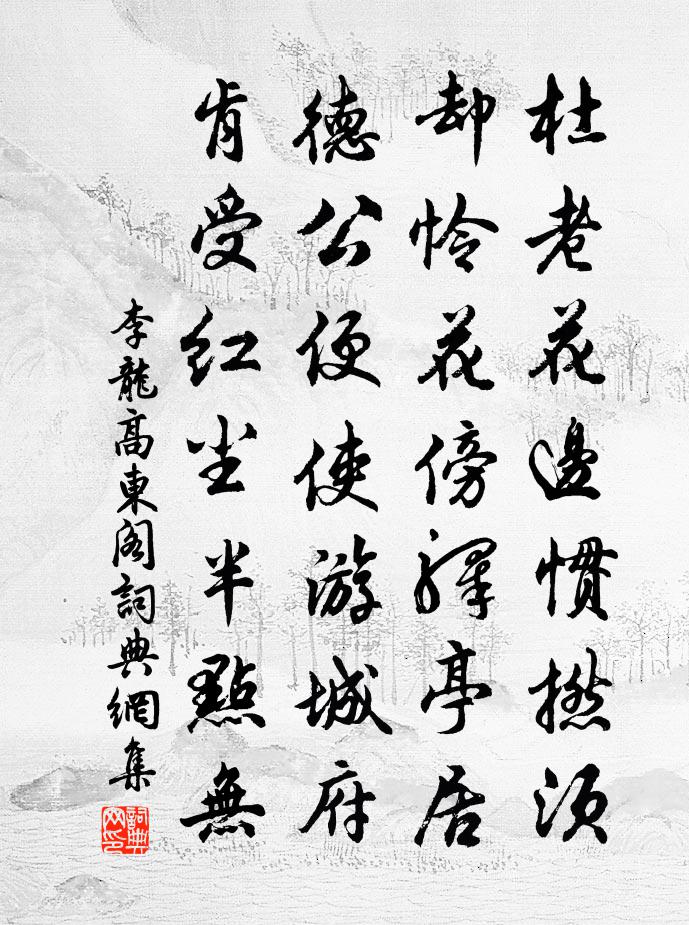 杜老花邊慣撚須
却怜花傍驛亭居
德公便使游城府
肯受红尘半點無
李龍高東阁詞典網集
詞典网印